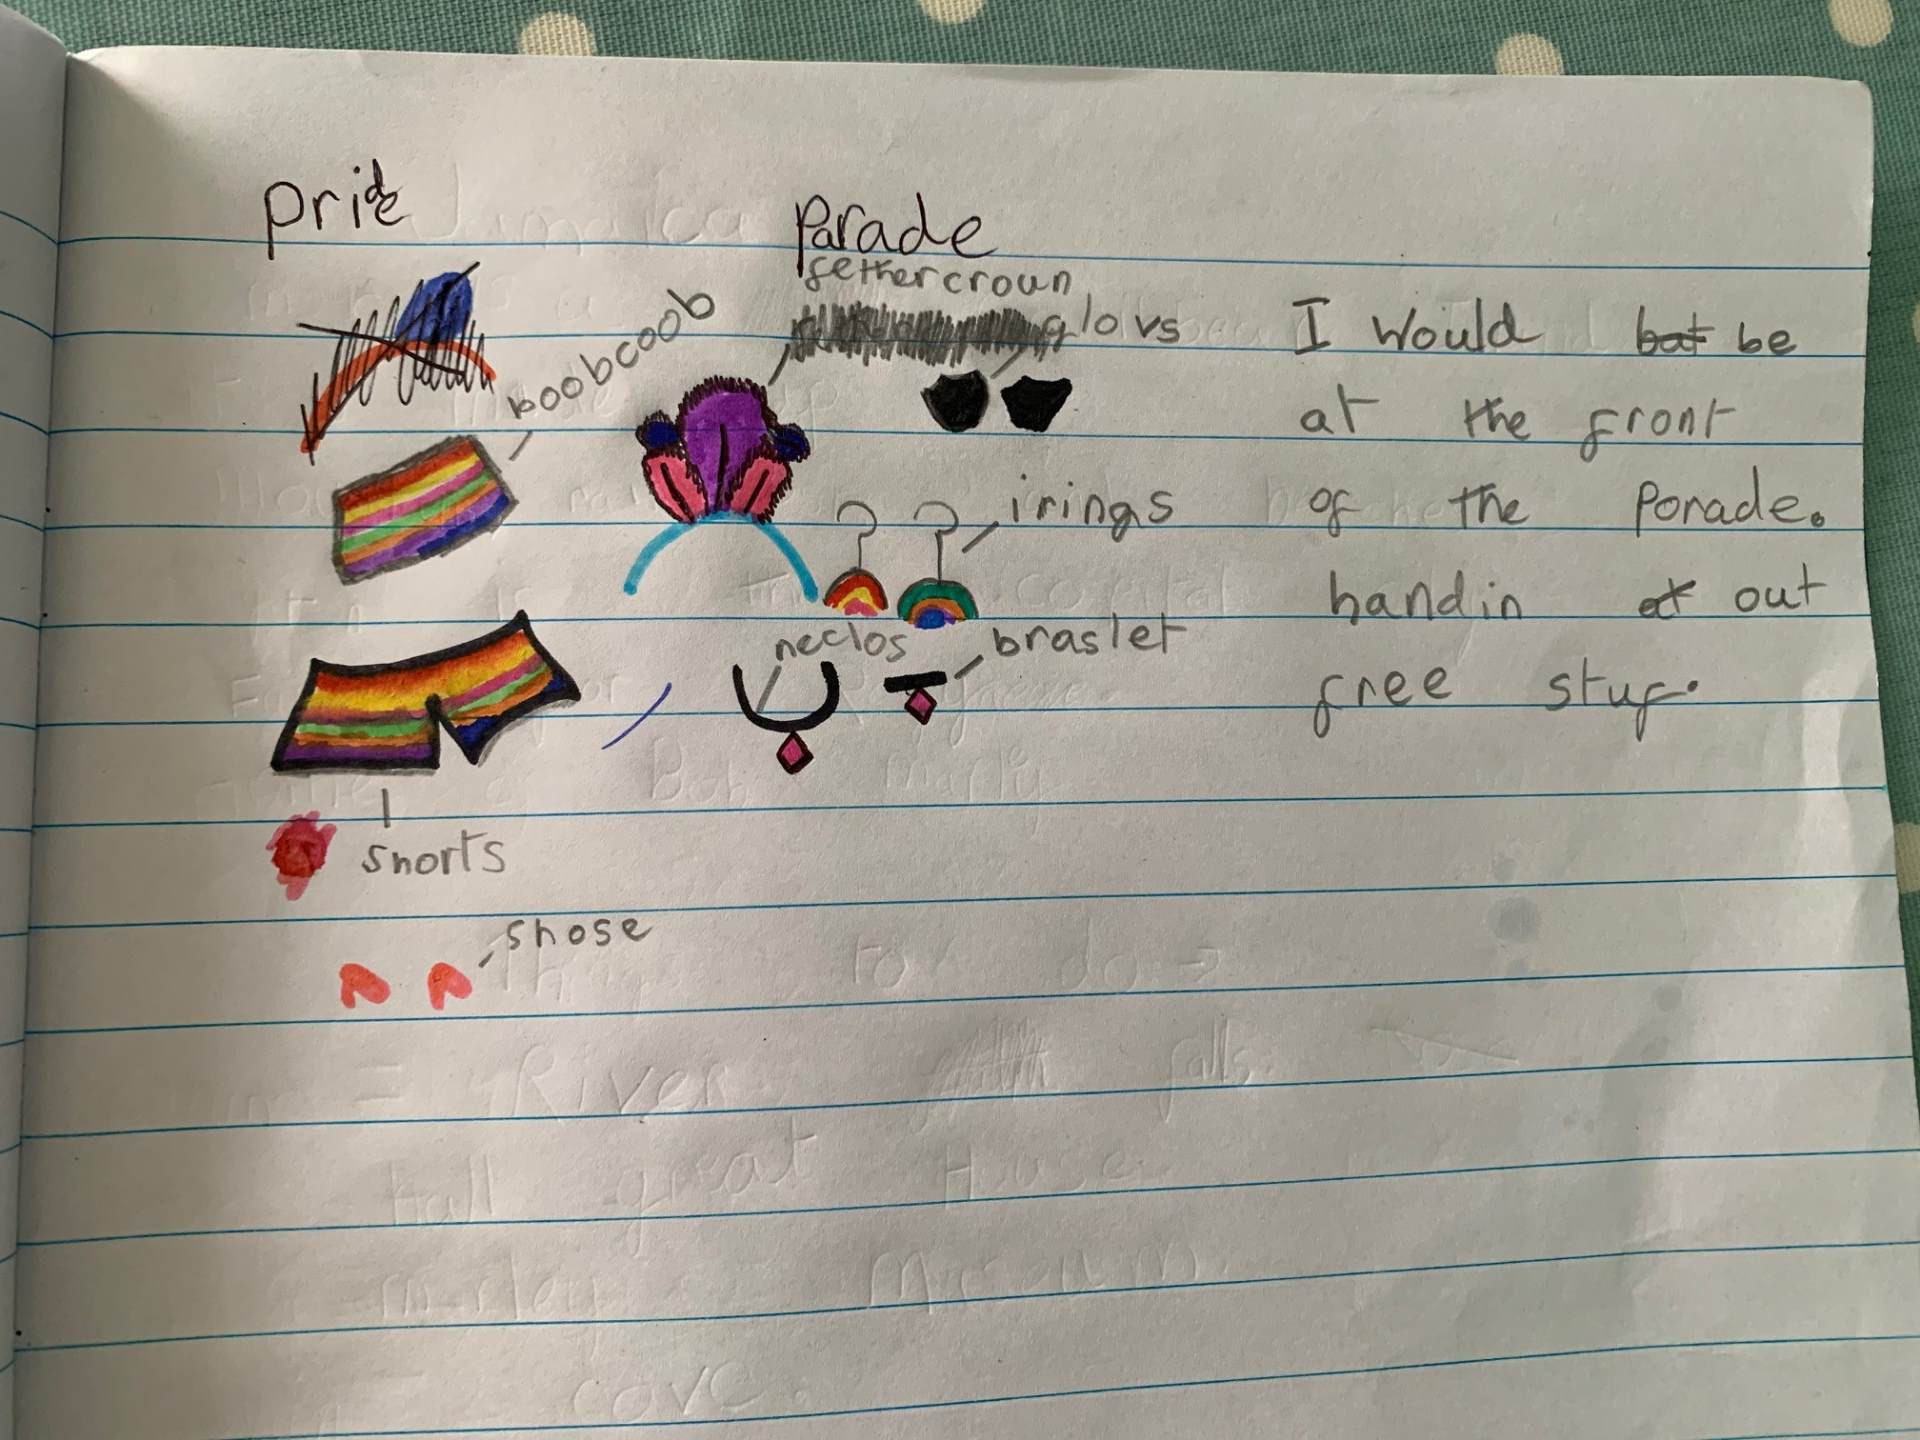 pride Parade
fethercroun
boobcoob
glovs
irings
neclos
braslet
shorts
shose
I would bat be
at the front
of the Porade.
handin at out
free stuf.